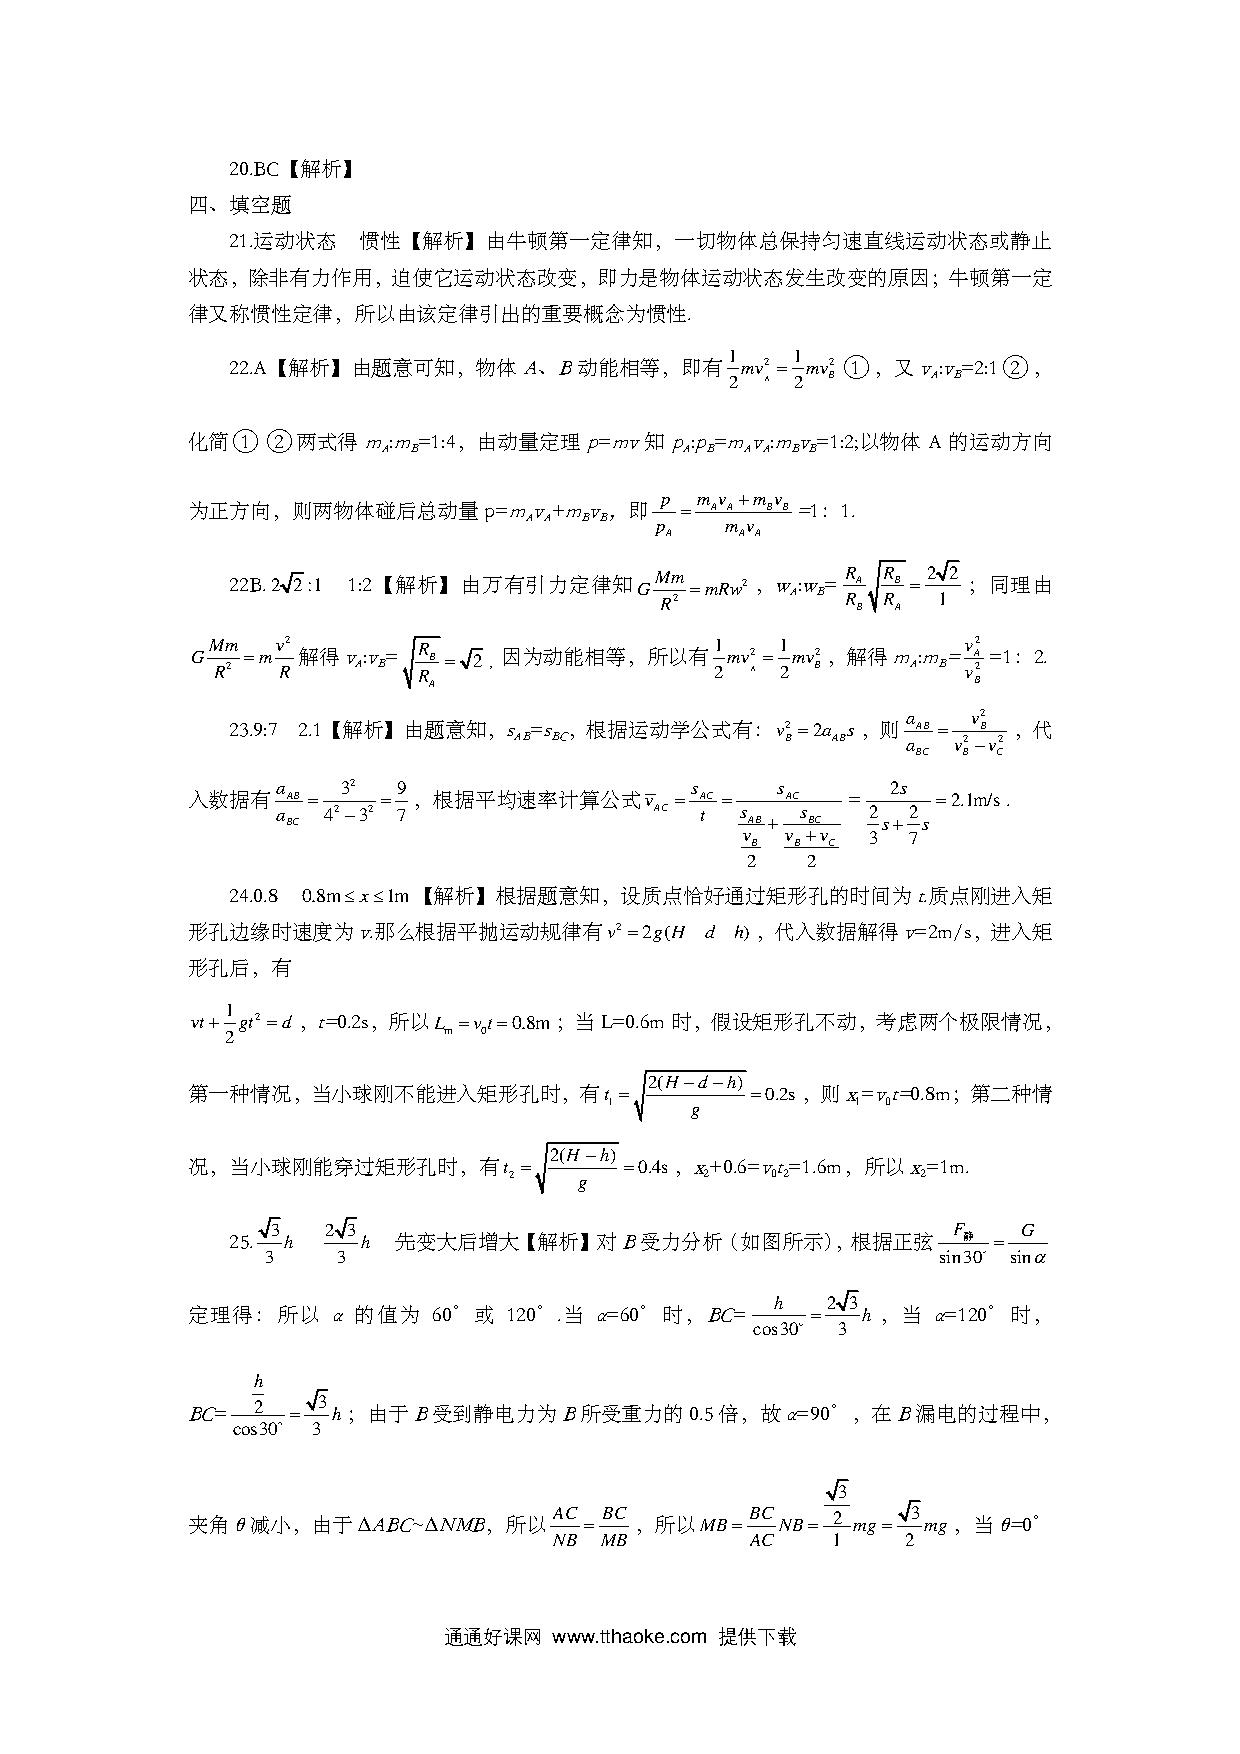 20.BC【解析】
四、填空题
21.运动状态 惯性【解析】由牛顿第一定律知，一切物体总保持匀速直线运动状态或静止
状态，除非有力作用，迫使它运动状态改变，即力是物体运动状态发生改变的原因；牛顿第一定
律又称惯性定律，所以由该定律引出的重要概念为惯性.
22.A【解析】由题意可知，物体 A、B 动能相等，即有 1/2 mv_A^2 = 1/2 mv_B^2 ①，又 v_A:v_B=2:1②，
化简① ②两式得 m_A:m_B=1:4，由动量定理 p=mv 知 p_A:p_B=m_Av_A:m_Bv_B=1:2;以物体 A 的运动方向
为正方向，则两物体碰后总动量 p=m_Av_A+m_Bv_B，即 p/p_A = (m_Av_A+m_Bv_B)/(m_Av_A) =1：1.
22B. 2√2:1 1:2【解析】由万有引力定律知 G Mm/R^2 = mRw^2，w_A:w_B= R_A/R_B √(R_B/R_A) = 2√2/1；同理由
G Mm/R^2 = m v^2/R 解得 v_A:v_B= √(R_B/R_A) = √2，因为动能相等，所以有 1/2 mv_A^2 = 1/2 mv_B^2，解得 m_A:m_B= v_A^2/v_B^2 =1：2.
23.9:7 2.1【解析】由题意知，s_AB=s_BC，根据运动学公式有：v_B^2 = 2a_AB s，则 a_AB/a_BC = v_B^2/(v_B^2−v_C^2)，代
入数据有 a_AB/a_BC = 3^2/(4^2−3^2) = 9/7，根据平均速率计算公式 v̄_AC = s_AC/t = s_AC/(s_AB/(v_B/2) + s_BC/((v_B+v_C)/2)) = 2s/(2/3 s + 2/7 s) = 2.1m/s .
24.0.8 0.8m≤x≤1m【解析】根据题意知，设质点恰好通过矩形孔的时间为 t.质点刚进入矩
形孔边缘时速度为 v.那么根据平抛运动规律有 v^2 = 2g(H d h)，代入数据解得 v=2m/s，进入矩
形孔后，有
vt+ 1/2 gt^2 = d，t=0.2s，所以 L_m = v_0t = 0.8m；当 L=0.6m 时，假设矩形孔不动，考虑两个极限情况，
第一种情况，当小球刚不能进入矩形孔时，有 t_1 = √(2(H−d−h)/g) = 0.2s，则 x_1=v_0t=0.8m；第二种情
况，当小球刚能穿过矩形孔时，有 t_2 = √(2(H−h)/g) = 0.4s，x_2+0.6=v_0t_2=1.6m，所以 x_2=1m.
25. √3/3 h 2√3/3 h 先变大后增大【解析】对 B 受力分析（如图所示），根据正弦 F_静/sin30° = G/sinα
定理得：所以 α 的值为 60°或 120°.当 α=60°时，BC= h/cos30° = 2√3/3 h，当 α=120°时，
BC= (h/2)/cos30° = √3/3 h；由于 B 受到静电力为 B 所受重力的 0.5 倍，故 α=90°，在 B 漏电的过程中，
夹角 θ 减小，由于 ΔABC~ΔNMB，所以 AC/NB = BC/MB，所以 MB = BC/AC NB = (√3/2)/1 mg = √3/2 mg，当 θ=0°
通通好课网 www.tthaoke.com 提供下载